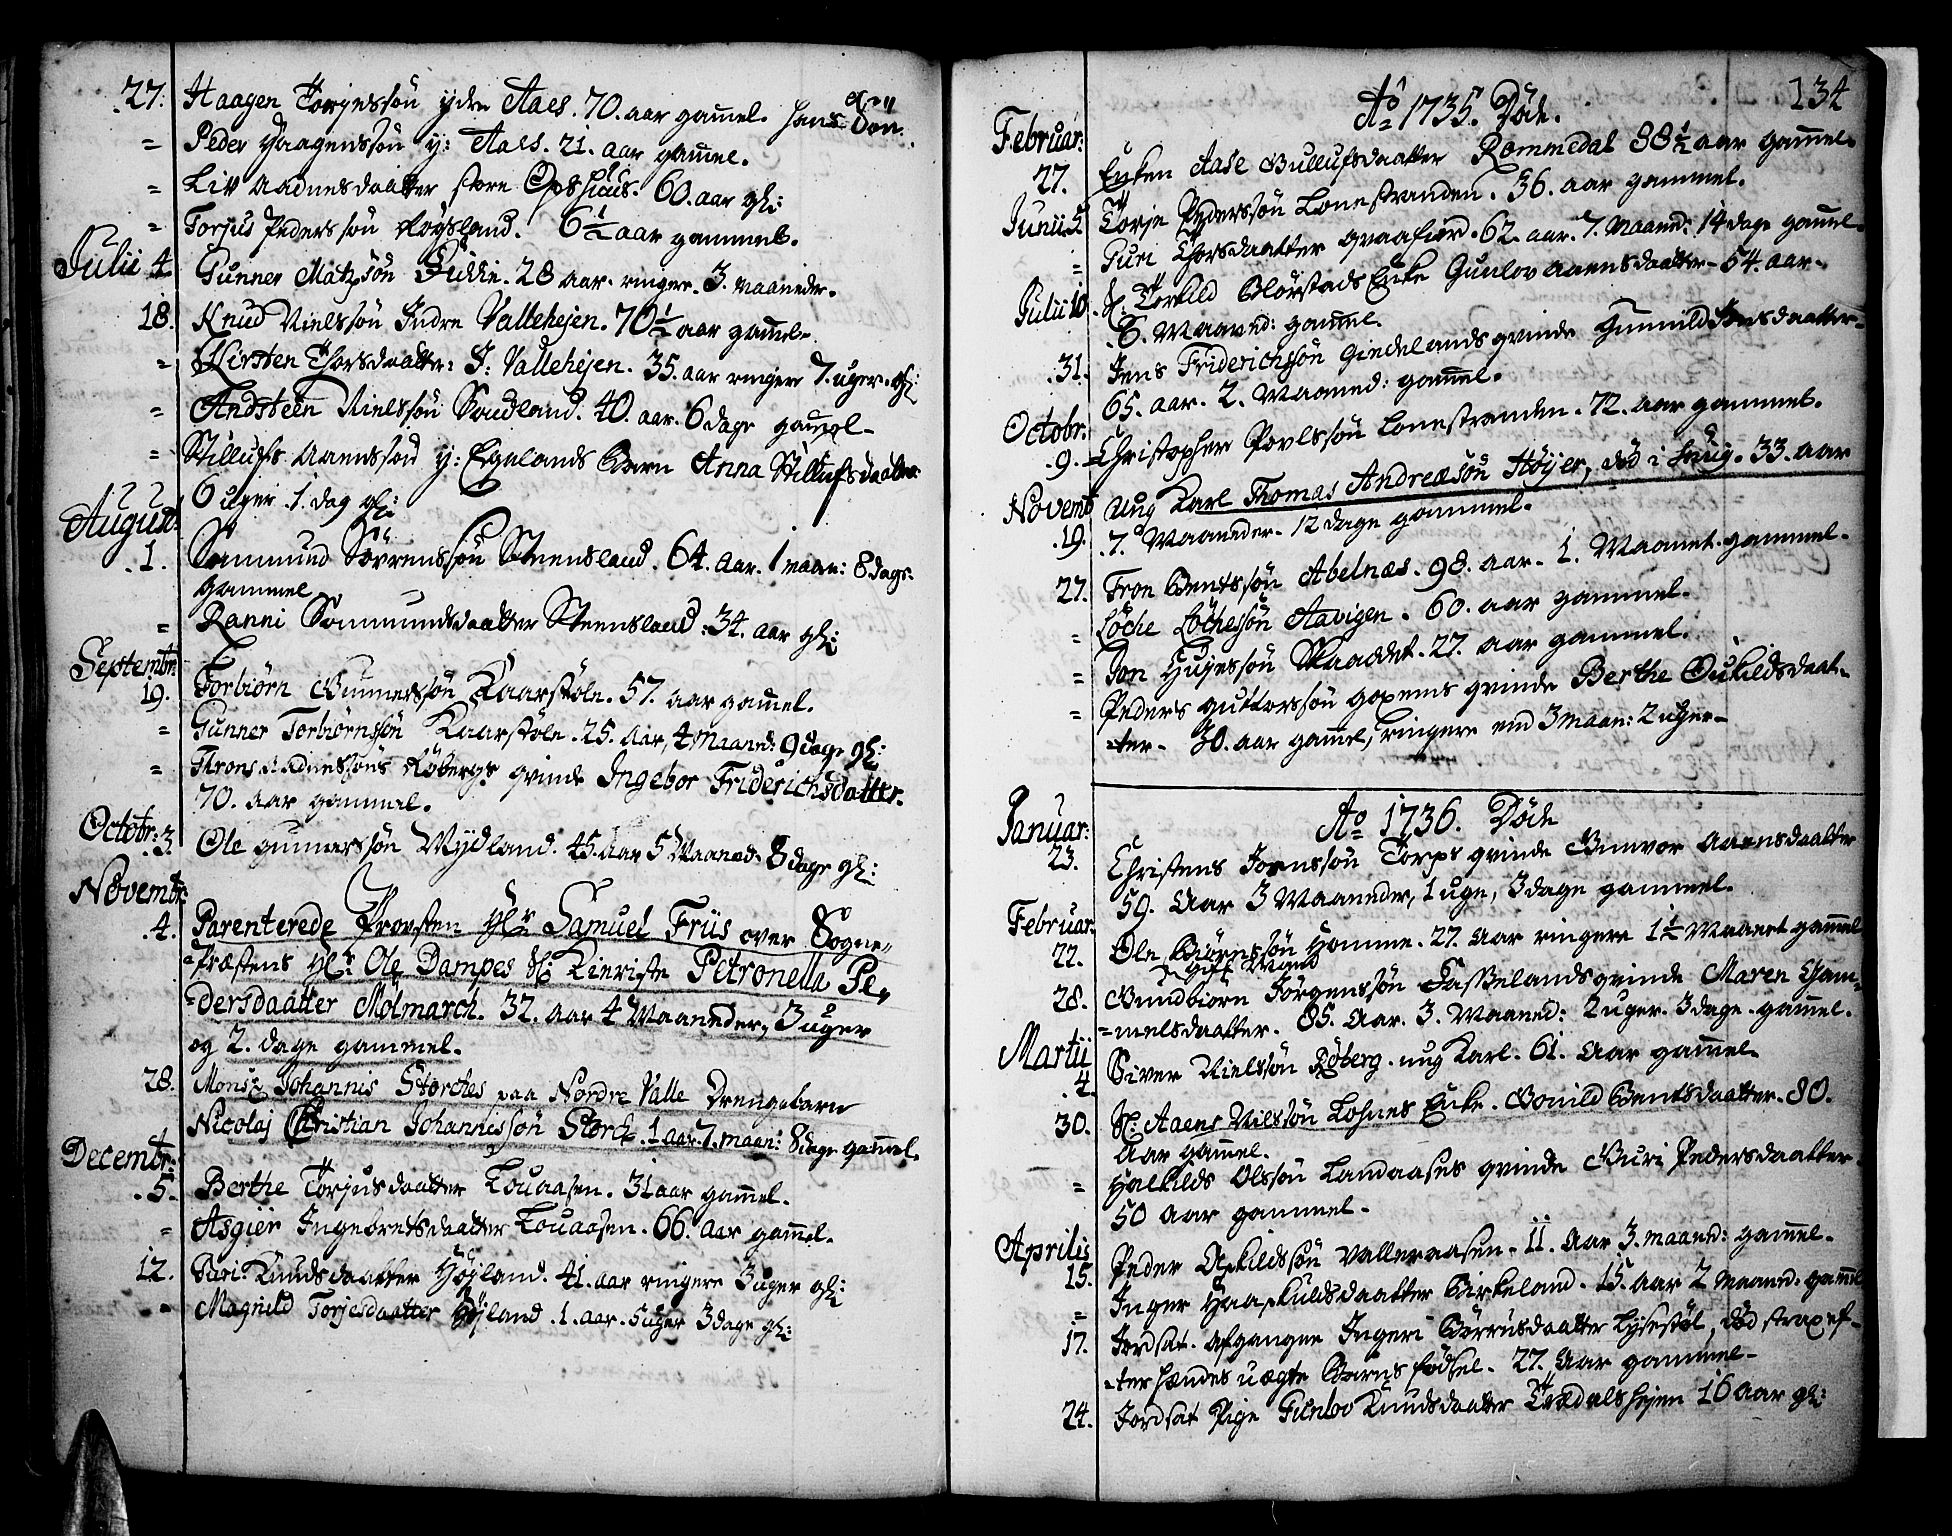 27. Haagen Torjussøn ydre Aaes. 70. aar gamel. hans Søn
= Peder Haagenssøn y: Aaes. 21. aar gamel.
= Liv Aadnesdaatter store Opshuus. 60. aar gl:
= Torjus Pederssøn Røysland. 6½ aar gammel.
Julii 4. Gunner Matzsøn 28 aar. ringere. 3. maaneder.
18. Knud Nielssøn Indre Vallehejen. 70½ aar gamel.
= Kirsten Thorsdaatter. I: Vallehejen. 35. aar ringere 7. uger. gl:
= Andsteen Nielssøn Soudland. 40. aar. 6 dage gamel.
= Stillufs Aaenssøn y: Egelands Barn Anna Stillufsdaatter
6 uger. 1. dag gl:
August.
.1. Sammund Sørrenssøn Steensland. 64. aar. 1 maan: 8 dage.
gammel
= Ranni Sommundsdaatter Steensland. 34. aar gl:
Septembr:
19. Torbiørn Gunnerssøn Kaarstøln. 57. aar gamel.
= Gunner Torbiørnssøn Kaarstøln. 25. aar, 4 maand: 9 dage gl:
= Throns Aadnessøns Røbergs qvinde Ingebor Friderichsdatter.
70. aar gammel.
Octobr: 3. Ole Gunnerssøn Nydland. 45. aar 5 Maaned. 8 dage gl:
Novembr:
.4. Parenterede Provsten Hr: Samuel Friis over Sogne-
Præstens Hr: Ole Dampes Sl: Kieriste Petronella Pe-
dersdaatter Mölmarch. 32. aar 4 Maaneder, 3 uger
og 2. dage gammel.
28. Monsr: Johannis Storches paa Nordre Valle Drengebarn
Nicolaj Christian Johannissøn Storch. 1 aar. 7. maan: 8 dage gamel.
Decembr:
.5. Berthe Torjusdaatter Louaasen. 31 aar gamel.
= Asgier Ingebretsdaatter Louaasen. 66. aar gamel.
12. Guri Knudsdaatter Højland. 41. aar ringere 3 uger gl:
= Magnild Torjesdaatter Højland. 1. aar. 5 uger 3 dage gl:
134
Ao 1735. Døde.
Februar:
27. Enken Aase Gullufsdaatter Rommedal 88½ aar gammel.
Junii 5. Torje Pederssøn Lonestranden. 36. aar gammel.
= Guri Thorsdaatter Graafiord. 62. aar. 7. Maaned: 14 dage gamel.
Julii 10. Sl: Torkild Blørstads Enke Gunlov Aaensdaatter. 54. aar.
6. Maaned: gammel.
31. Jens Friderichssøn Giedelands qvinde Gunnild Jensdaatter.
65. aar. 2. Maaned: gammel.
Octobr:
.9. Christopher Povlssøn Lonestranden. 72. aar gammel.
Novemb Ung Karl Thomas Andreæsøn Høyer, død i Snig. 33. aar
19. 7. Maaneder. 12 dage gammel.
27. Tron Bentssøn Abelnæs. 98. aar. 1. Maanet. gammel.
= Løche Løchessøn Aavigen. 60. aar gammel.
= Jon Skaaddet. 27. aar gammel.
= Peders Guttorssøn qvinde Berthe Oukildsdaat-
=ter. 30. aar gamel, ringere end 3 maan: 2 uger.
Januar: Ao 1736. Døde
23. Christens Jornssøn Torps qvinde Gunvor Aaensdaatter
59. Aar 3 Maaneder, 1 uge, 3 dage gammel.
Februar:
22. Ole Biørnssøn Homme. 27. Aar ringere 1½ Maanet gammel
gift Mand
28. Gundbiørn Jørgenssøn Tasselands qvinde Maren Gam-
=melsdaatter. 85. Aar. 3. Maaned: 2 uger. 3 dage. gammel.
Martii
4. Siver Nielssøn Røberg. ung Karl. 61. Aar gammel.
30. Sl: Aaens Nielssøn Losnes Enke. Gonild Bentsdaatter. 80.
Aar gammel.
= Halkilds Olssøn Landaases qvinde Guri Pedersdaatter
50 Aar gammel.
Aprilis
15. Peder Askildssøn Valleraasen. 11. Aar 3. maand: gammel.
= Inger Haaskuldsdaatter Birkeland. 15. aar 2 maaned. gamel
17. Jordsat. afgangne Ingeri Børrusdaatter Lyseståøl, død strax ef-
=ter hendes uægte Barns fødsel. 27. Aar gammel.
24. Jordsat Pige Gunbo Knudsdaatter Trædalshejen 16 Aar gl: